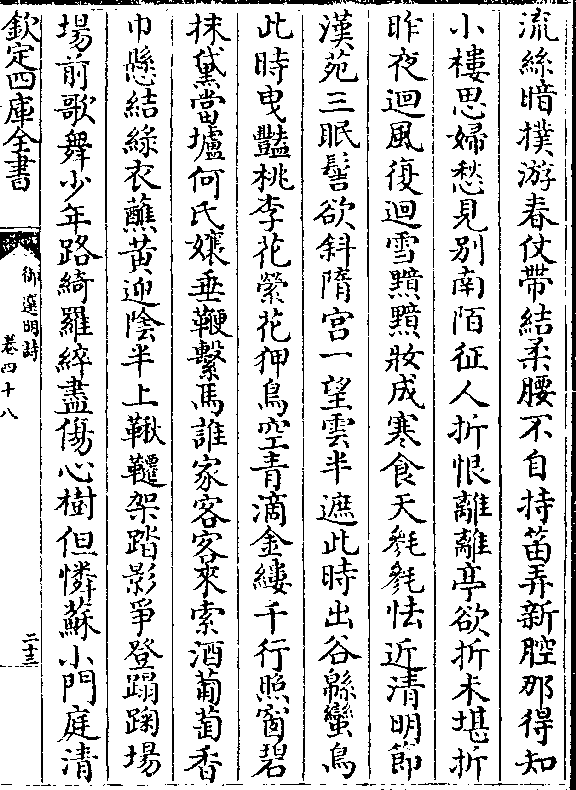 流絲暗撲游春仗帶結柔腰不自持笛弄新腔那得知
小樓思婦愁見別南陌征人折恨離離亭欲折未堪折
昨夜迴風復迴雪黯黯妝成寒食天毿毿怯近清明節
漢苑三眠髻欲斜隋宮一望雲半遮此時出谷緜蠻鳥
此時曳豔桃李花縈花狎鳥空青滴金縷千行照窗碧
抹黛當壚何氏孃垂鞭繫馬誰家客客來索酒葡萄香
巾懸結綠衣蘸黃迎陰半上鞦韆架踏影爭登蹋踘場
場前歌舞少年路綺羅綷盡傷心樹但憐蘇小門庭清
欽定四庫全書
御選明詩
卷四十八
二十三